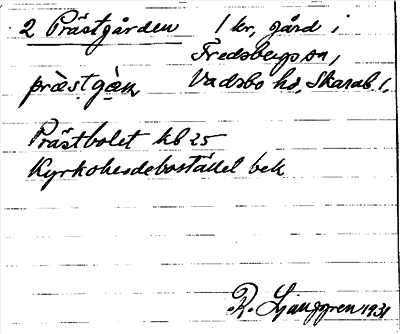 2 Prästgården
1 kr, gård i
Fredsbergs sn,
Vadsbo hd, Skarab. l.
præ̀stgàn
Prästbolet kb 25
Kyrkoherdebostället bek
R. Ljunggren 1931